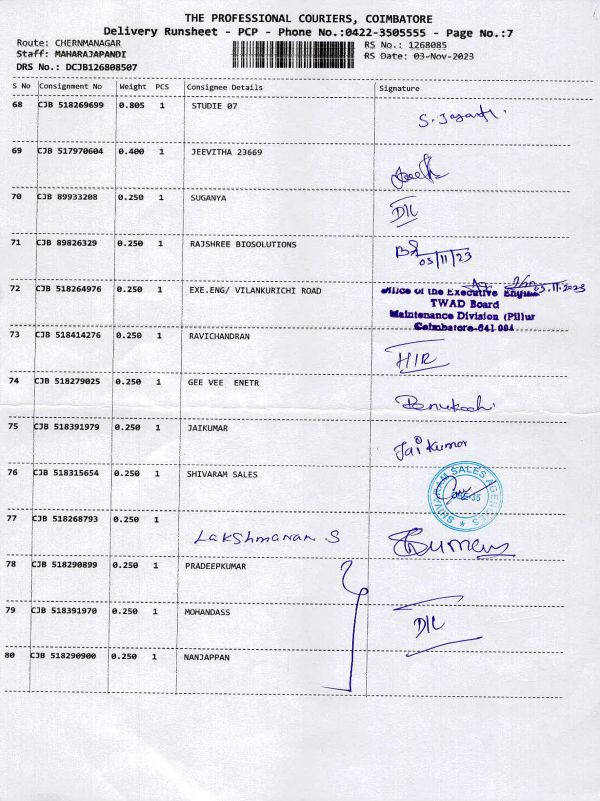 THE PROFESSIONAL COURIERS, COIMBATORE
Delivery Runsheet - PCP - Phone No.:0422-3505555 - Page No.:7
Route: CHERNMANAGAR
RS No.: 1268085
Staff: MAHARAJAPANDI
RS Date: 03-Nov-2023
DRS No.: DCJB126808507
S No Consignment No Weight PCS Consignee Details Signature
68 CJB 518269699 0.805 1 STUDIE 07
69 CJB 517970604 0.400 1 JEEVITHA 23669
70 CJB 89933208 0.250 1 SUGANYA
DIL
71 CJB 89826329 0.250 1 RAJSHREE BIOSOLUTIONS
03/11/23
72 CJB 518264976 0.250 1 EXE.ENG/ VILANKURICHI ROAD
03.11.2023
Office of the Executive
TWAD Board
Maintenance Division (Pillur
Coimbatore-641 004
73 CJB 518414276 0.250 1 RAVICHANDRAN
HIR
74 CJB 518279025 0.250 1 GEE VEE ENETR
75 CJB 518391979 0.250 1 JAIKUMAR
Jai Kumar
76 CJB 518315654 0.250 1 SHIVARAM SALES
SHIVARAM SALES AGENCIES
77 CJB 518268793 0.250 1
Lakshmanan S
78 CJB 518290899 0.250 1 PRADEEPKUMAR
79 CJB 518391970 0.250 1 MOHANDASS
DIL
80 CJB 518290900 0.250 1 NANJAPPAN